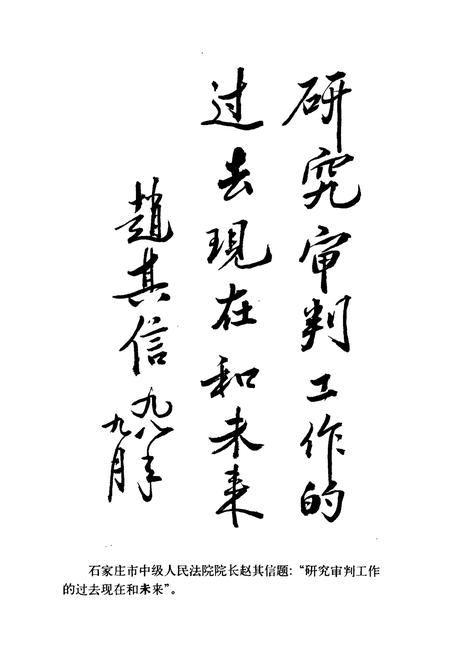 研究审判工作的
过去現在和未来
趙其信
九八年
九月
石家庄市中级人民法院院长赵其信题：“研究审判工作
的过去现在和未来”。